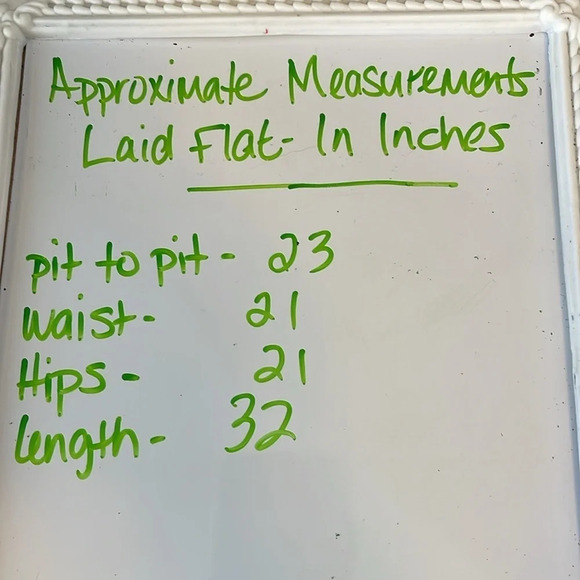 Approximate Measurements
Laid Flat- In Inches
pit to pit - 23
waist- 21
Hips - 21
length- 32